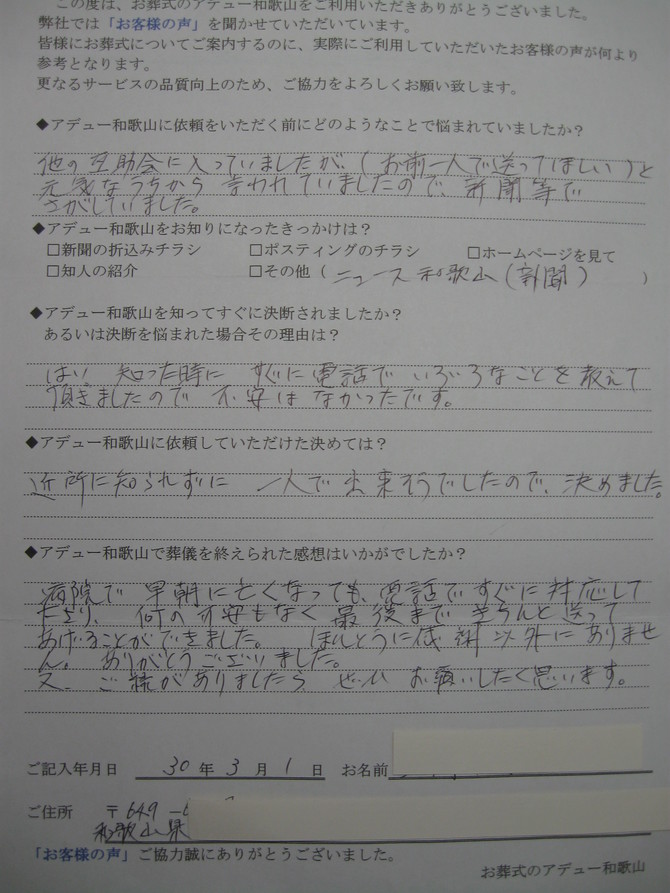 この度は、お葬式のアデュー和歌山をご利用いただきありがとうございました。
弊社では「お客様の声」を聞かせていただいています。
皆様にお葬式についてご案内するのに、実際にご利用していただいたお客様の声が何より
参考となります。
更なるサービスの品質向上のため、ご協力をよろしくお願い致します。
◆アデュー和歌山に依頼をいただく前にどのようなことで悩まれていましたか？
他の互助会に入っていましたが、(お前一人で送ってほしい)と
元気なうちから言われていましたので、新聞等で
さがしていました。
◆アデュー和歌山をお知りになったきっかけは？
□新聞の折込みチラシ □ポスティングのチラシ □ホームページを見て
□知人の紹介 □その他 (ニュース和歌山(新聞) )
◆アデュー和歌山を知ってすぐに決断されましたか？
あるいは決断を悩まれた場合その理由は？
はい 知った時に すぐに電話で いろいろなことを教えて
頂きましたので 不安は なかったです。
◆アデュー和歌山に依頼していただけた決めては？
近所に知られずに 一人で出来そうでしたので、決めました。
◆アデュー和歌山で葬儀を終えられた感想はいかがでしたか？
病院で 早朝に亡くなっても、電話ですぐに対応して
下さり、何の不安もなく 最後まで きちんと送って
あげることができました。 ほんとうに感謝以外にありませ
ん。 ありがとうございました。
又、ご縁がありましたら ぜひ お願いしたく思います。
ご記入年月日 30 年 3 月 1 日 お名前
ご住所 〒 649 -
和歌山県
「お客様の声」ご協力誠にありがとうございました。
お葬式のアデュー和歌山